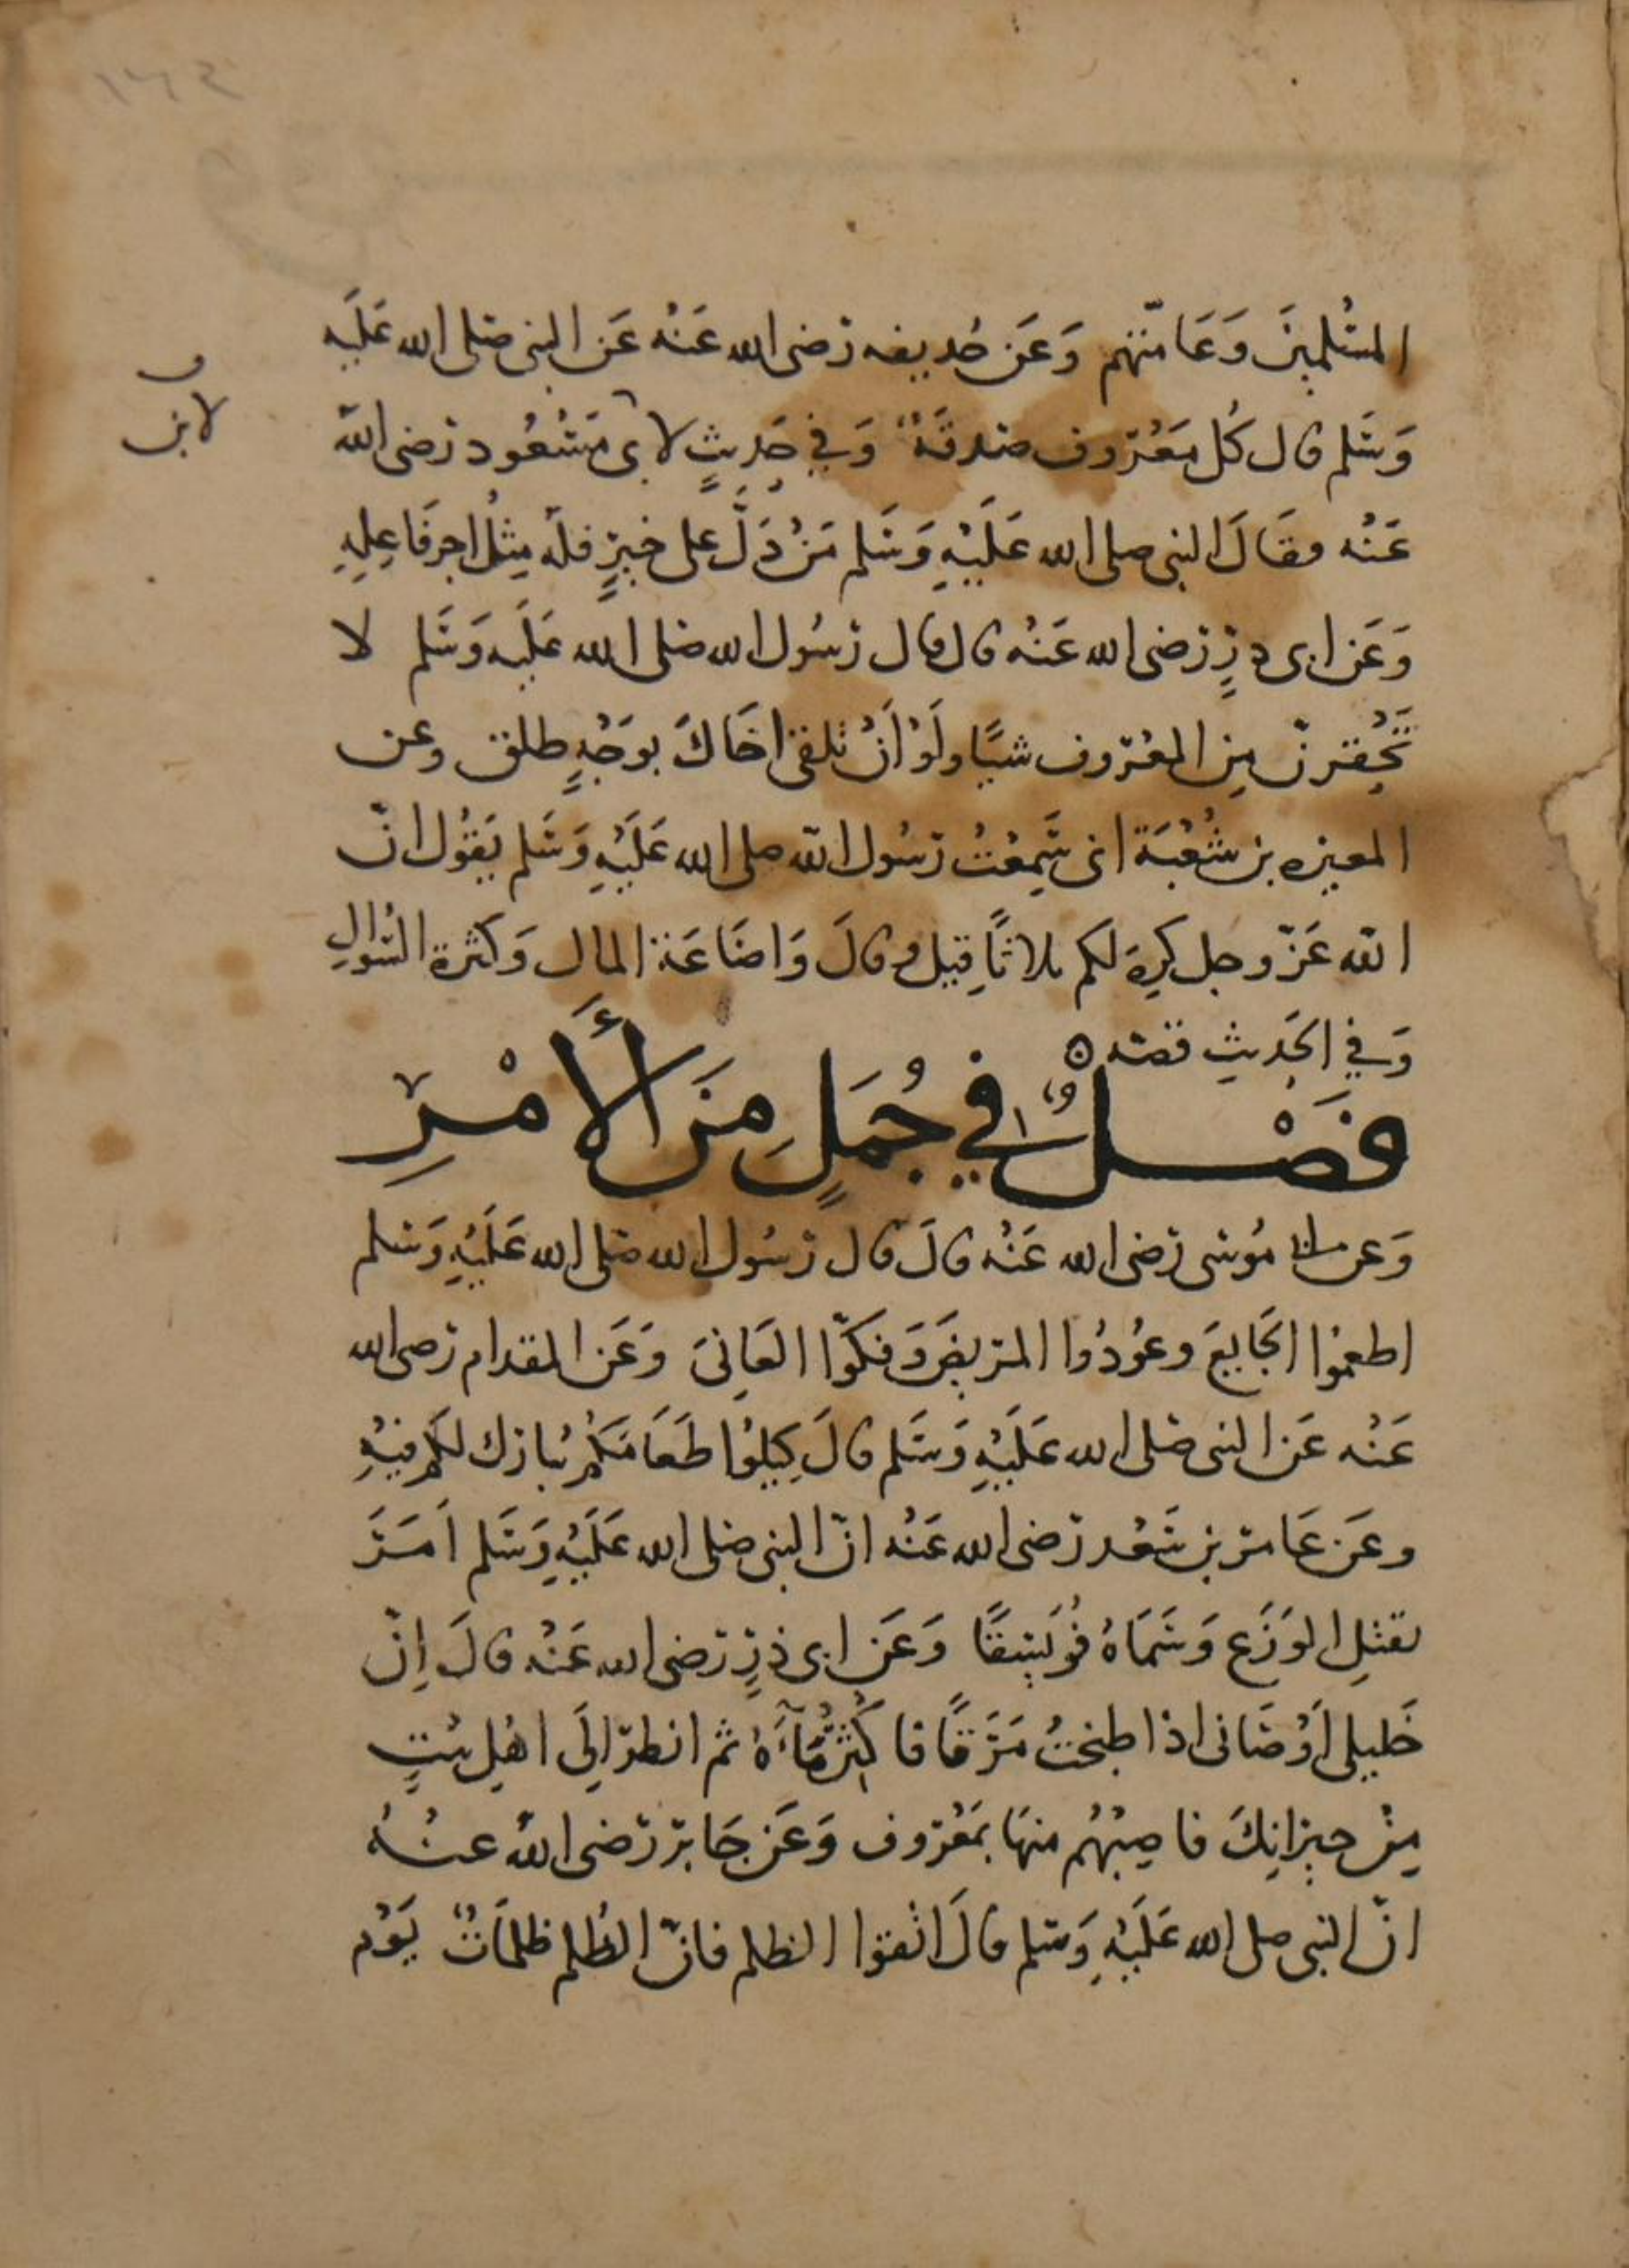 ١٦٢
المسْلمينَ وَعَامّتهم وَعَن حُديفه رَضى الله عَنْه عَن النبى صَلى الله عَلَيه
وَسَلم قال كُل مَعْرُوف صَدقَةٌ وَفي حَدِيثٍ لابى مَسْعُود رَضى الله
ف
لابن
عَنْه فقَالَ النبى صلى الله عَلَيْهِ وَسَلم مَنْ دَلَّ على خيرٍ فله مِثلُ اجر فَاعِلِهِ
وَعَن ابى ذرٍ رَضى الله عَنْه قال قال رَسُول الله صَلى الله عَلَيه وَسَلم لا
تَحْقِرنّ مِن المعْرُوف شيًا ولَوْ اَنْ تلقى اخَاكَ بوَجْهٍ طلق وعن
المغيره بن شُعْبَة انى سَمِعْتُ رَسُول الله صلى الله عَلَيْهِ وَسَلم يَقُول انّ
الله عَزّ وجل كرِهَ لكم ثلاثاً قِيل وقالَ وَاضَاعَة المال وَكثرة السُّوالِ
وَفي الحَديثِ قصّه ه
فَصْلٌ في جُمَلٍ مِنَ الأَمْرِ
وَعن ابى مُوسى رَضى الله عَنْه قالَ قال رَسُول الله صَلى الله عَلَيْهِ وَسَلم
اطعمُوا الجَايِعَ وعُودُوا المرَيضَ وَفكوّا العَانِىَ وَعَن المقدام رَضى الله
عَنْه عَن النبى صَلى الله عَلَيْهِ وَسَلم قالَ كِيلوُا طَعَامَكُمْ يُبارَك لكم فيْهِ
وعَن عَامر بن سَعْد رَضى الله عَنْه انّ النبى صَلى الله عَلَيْهِ وَسَلم اَمَرَ
بقتْلِ الوَزَع وَسَمَاهُ فُوَيسِقًا وَعَن ابى ذرٍ رَضى الله عَنْه قالَ اِنّ
خَليلى اَوْصَانى اذا طبختُ مَرَقًا فاكُثِرْ مَآءَهُ ثم انظرْ الِىَ اهْلِ بيْتٍ
مِنْ جيرَانِكَ فاصِبْهُم منهَا بمَعْرُوف وَعَن جَابر رَضى الله عنْهُ
انّ النّبى صلى الله عَلَيْهِ وَسَلم قالَ اتْقوا الظلم فانّ الظُلم ظلمَاتٌ يَوْم